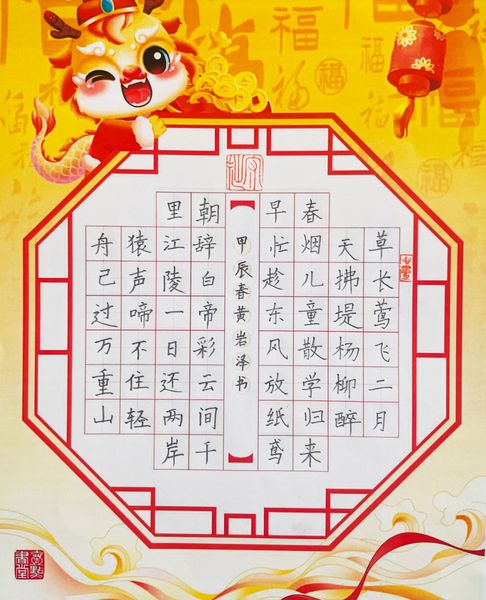 草长莺飞二月
天拂堤杨柳醉
春烟儿童散学归来
早忙趁东风放纸鸢
甲辰春黄岩泽书
朝辞白帝彩云间千
里江陵一日还两岸
猿声啼不住轻
舟己过万重山
福
福
福